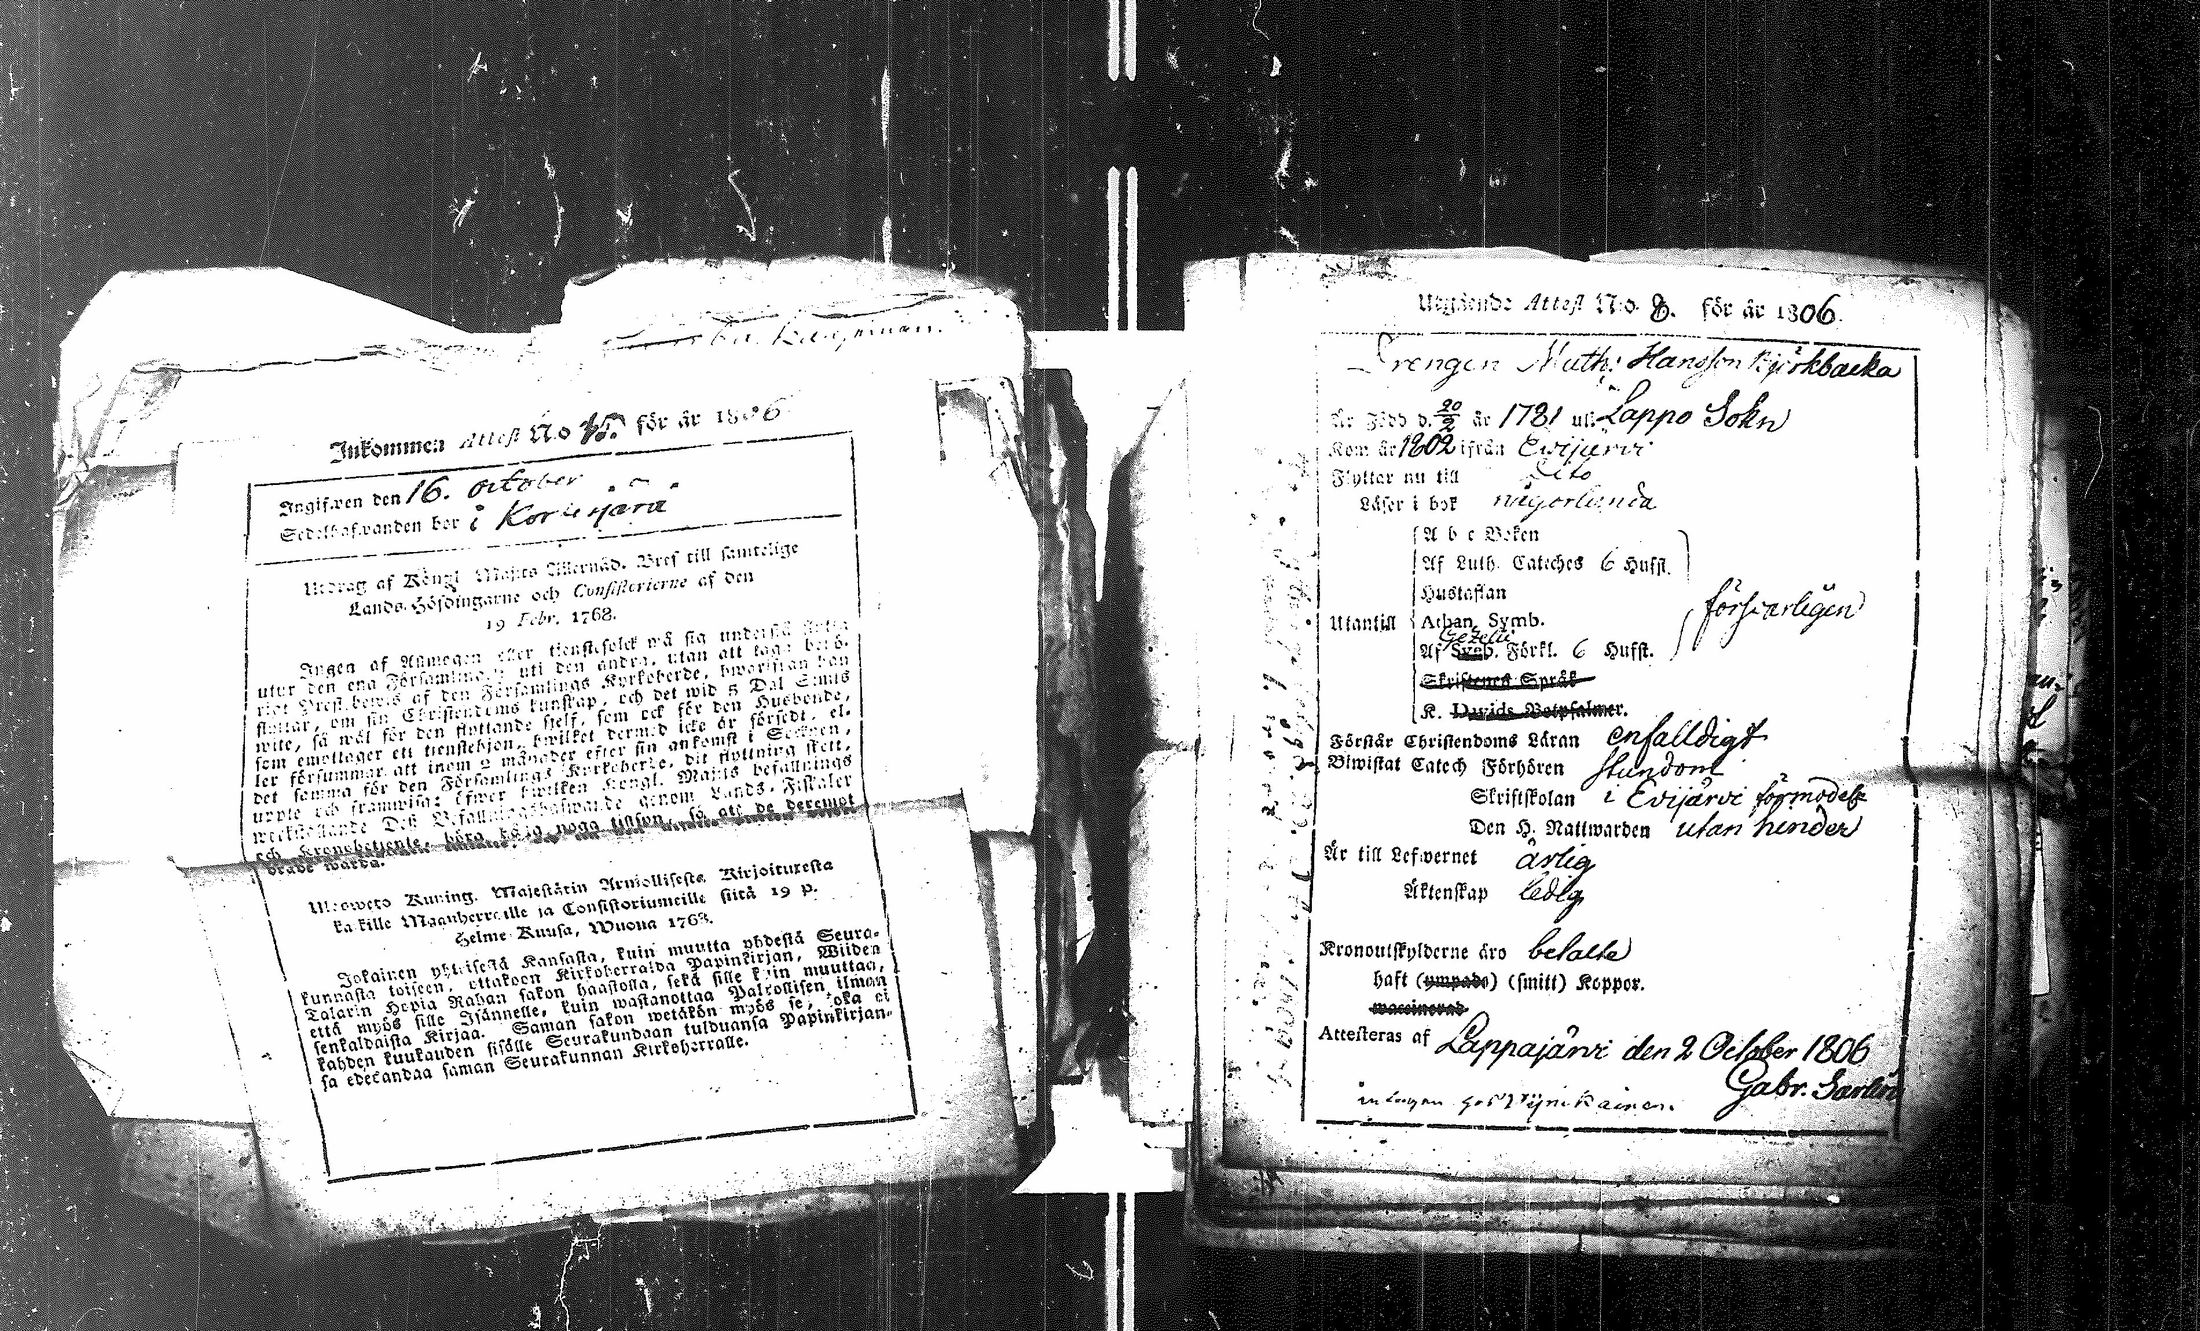 Inkommen Attest No för år 1806
Ingifwen den 16. october
Sedelhafwanden bor i Kortesjärvi
Utdrag af Kongl Maj:ts Allernåd. Bref till samtelige
Lands-Höfdingarne och Consistorierne af den
19 Febr. 1768.
Ingen af Allmogen eller tienstefolck må sig understå flytta
utur den ena Församling uti den andra, utan att taga behö-
rigt Prest-bewis af den Församlings Kyrkoherde, hwarifrån han
flyttar, om sin Christendoms kunskap, och det wid 5 Dal Smts
wite, så wäl för den flyttande sielf, som ock för den Husbonde,
som emottager ett tienstehjon, hwilket dermed icke är försedt, el-
ler försummar att inom 2 månader efter sin ankomst i Socknen,
det samma för den Församlings Kyrkoherde, dit flyttning skett,
uppte och framwisa; öfwer hwilken Kongl. Maj:ts befallnings
werkställande Deß Befallningshafwande genom Lands-Fiskaler
och Kronobetjente, böra hålla noga tillsyn, så att de derempot
brade warda.
Ulosweto Kuning. Majestätin Armollisesta Kirjoituresta
kaikille Maanherroille ja Consistoriumeille siitä 19 p.
Helme Kuusa, Wuona 1768.
Jokainen yhteisestä Kansasta, kuin muutta yhdestä Seura-
kunnasta toiseen, ottakoon Kirkoherralda Papinkirjan, Wiiden
Talarin Hopia Rahan sakon haastolla, sekä sille kuin muuttaa,
että myös sille Isännelle, kuin wastanottaa Palkollisen ilman
senkaldaista Kirjaa. Saman sakon wetäkön myös se, joka ei
kahden kuukauden sisälle Seurakundaan tulduansa Papinkirjan-
sa edeskandaa saman Seurakunnan Kirkoherralle.
Utgående Attest No. 8. för år 1806.
Drengen Math: Hansson Björkbacka
Är Född d. 20/2 år 1781 uti Lappo Sokn
Kom år 1802 ifrån Evijärvi
Flyttar nu till Dito
Läser i bok någorlunda
A b c Boken
Af Luth. Cateches 6 Hufst.
Hustaflan
Utantill Athan. Symb. försvarligen
Gezelii
Af Sveb. Förkl. 6 Hufst.
Skriftenes Språk
K. Davids Botpsalmer.
Förstår Christendoms Läran enfalldigt
Biwistat Catech Förhören stundom
Skriftskolan i Evijärvi förmodel:
Den H. Nattwarden utan hinder
Är till Lefwernet ärlig
Äktenskap ledig
Kronoutskylderne äro betalte
haft (ympade) (smitt) Koppor.
waccinerad
Attesteras af Lappajärvi den 2 October 1806
Gabr. Sarlin